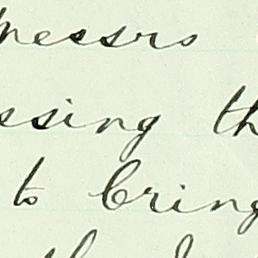 messrs
ssing th
to bring